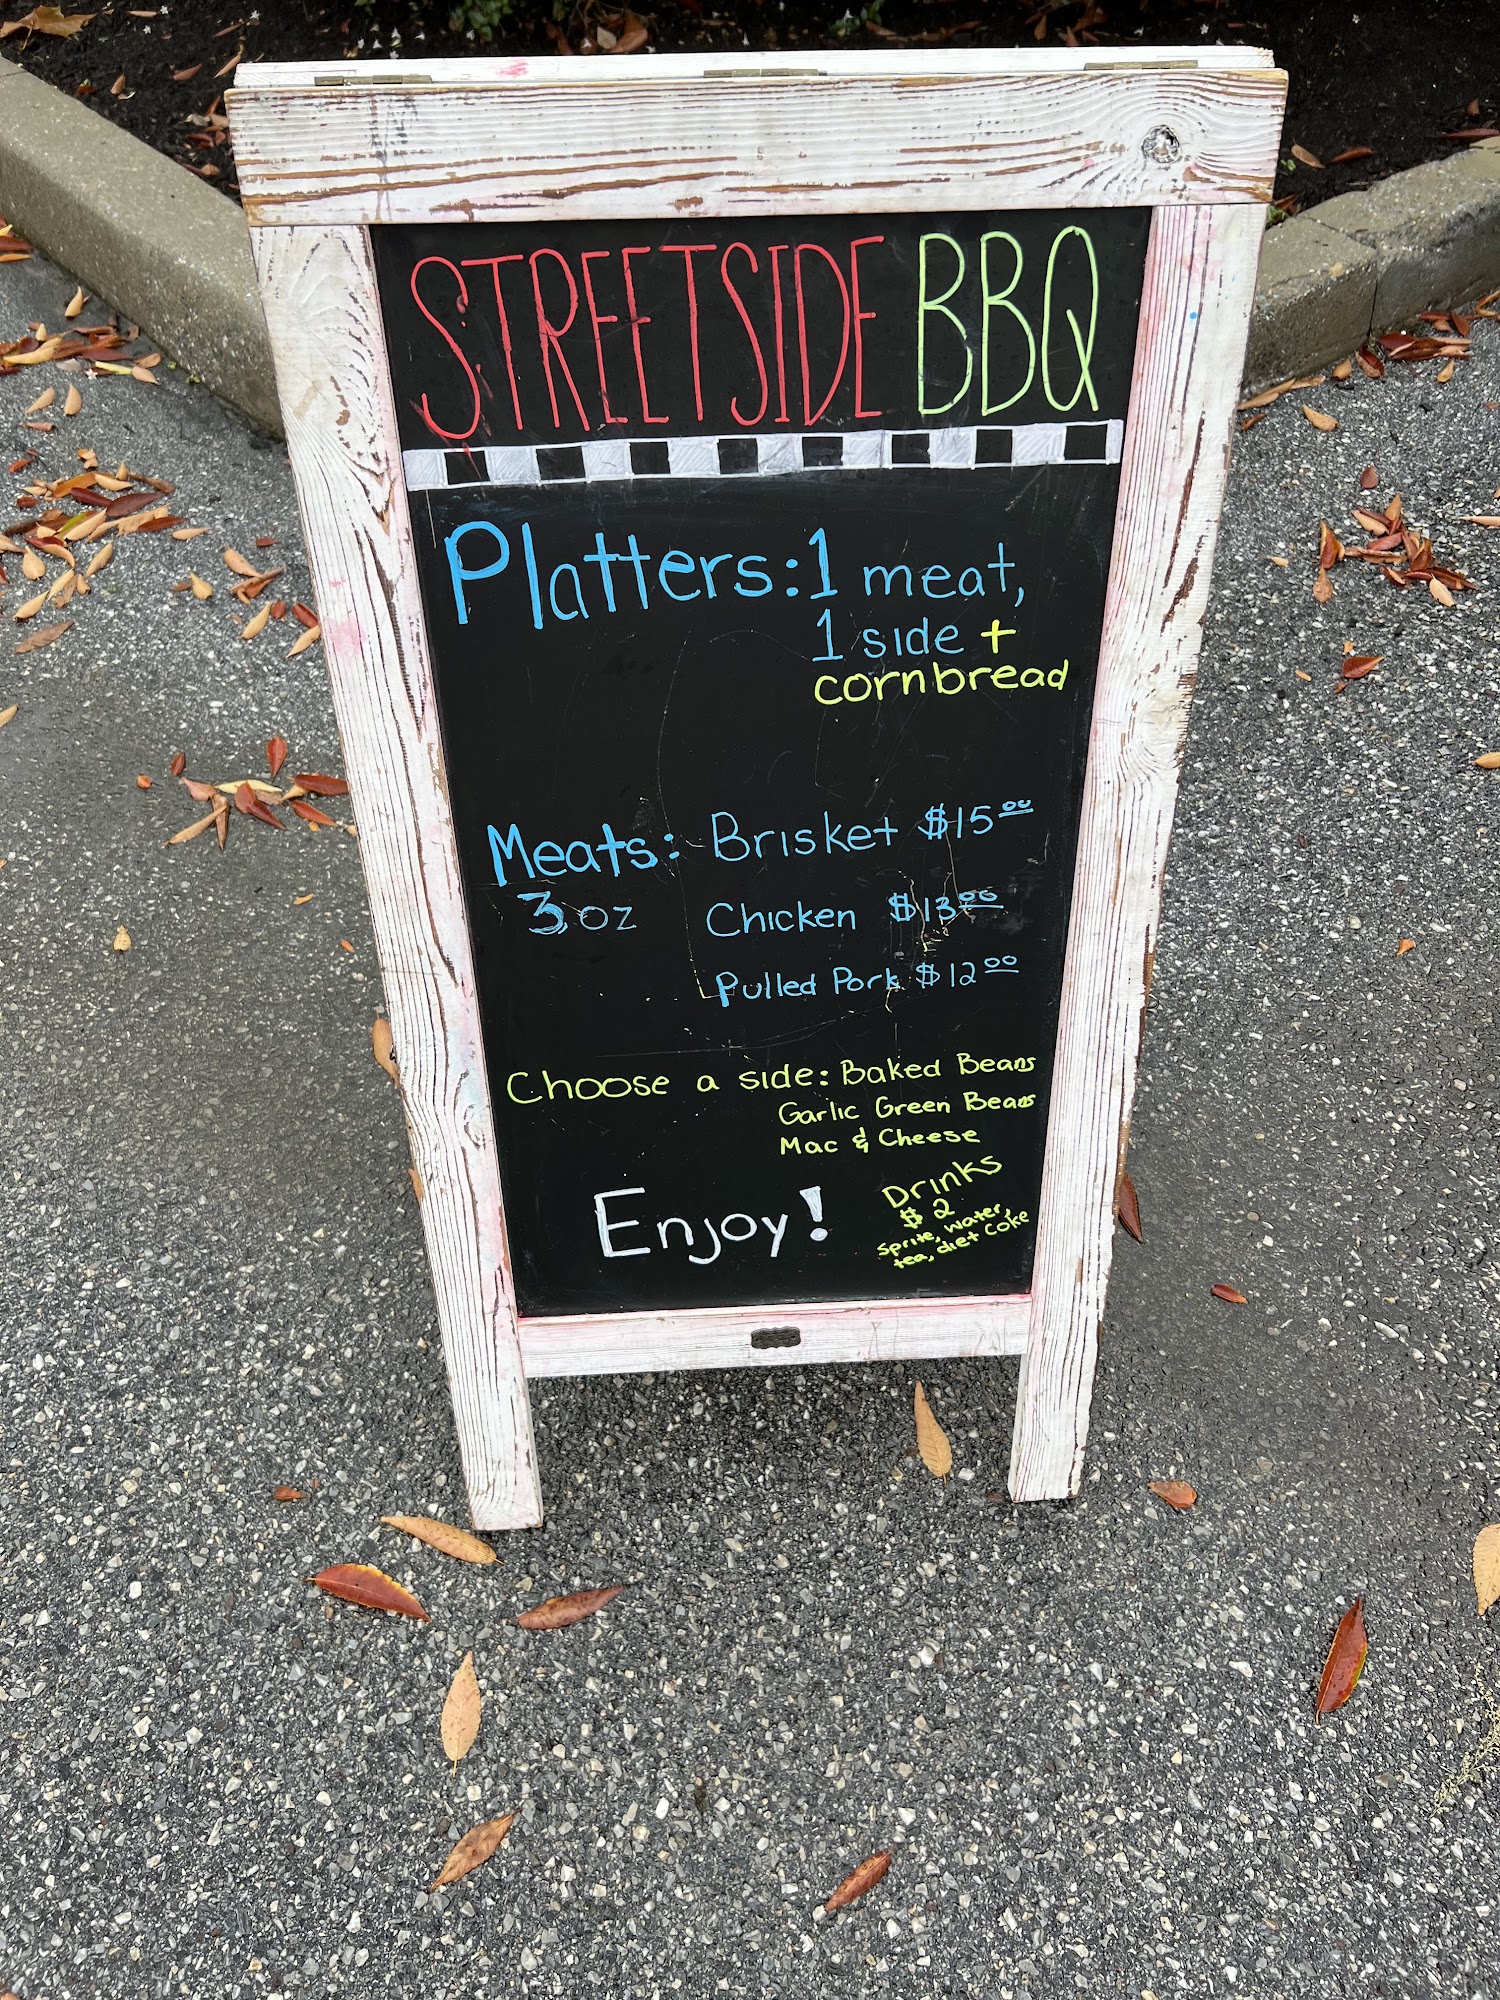 STREETSIDE BBQ
Platters: 1 meat,
1 side +
cornbread
Meats: Brisket $15.00
3 oz Chicken $13.00
Pulled Pork $12.00
Choose a side: Baked Beans
Garlic Green Beans
Mac & Cheese
Enjoy!
Drinks
$2
sprite, water,
tea, diet coke